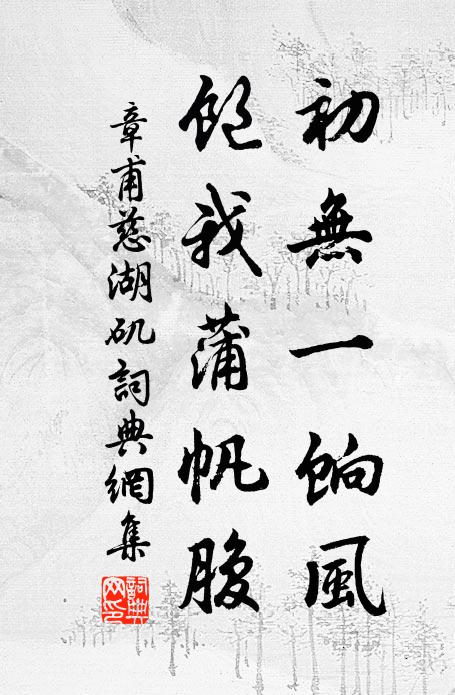 初無一餉風
飽我蒲帆腹
章甫慈湖矶詞典網集